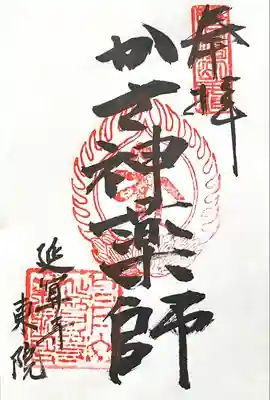 奉拝
かさ神薬師
延算寺
東院